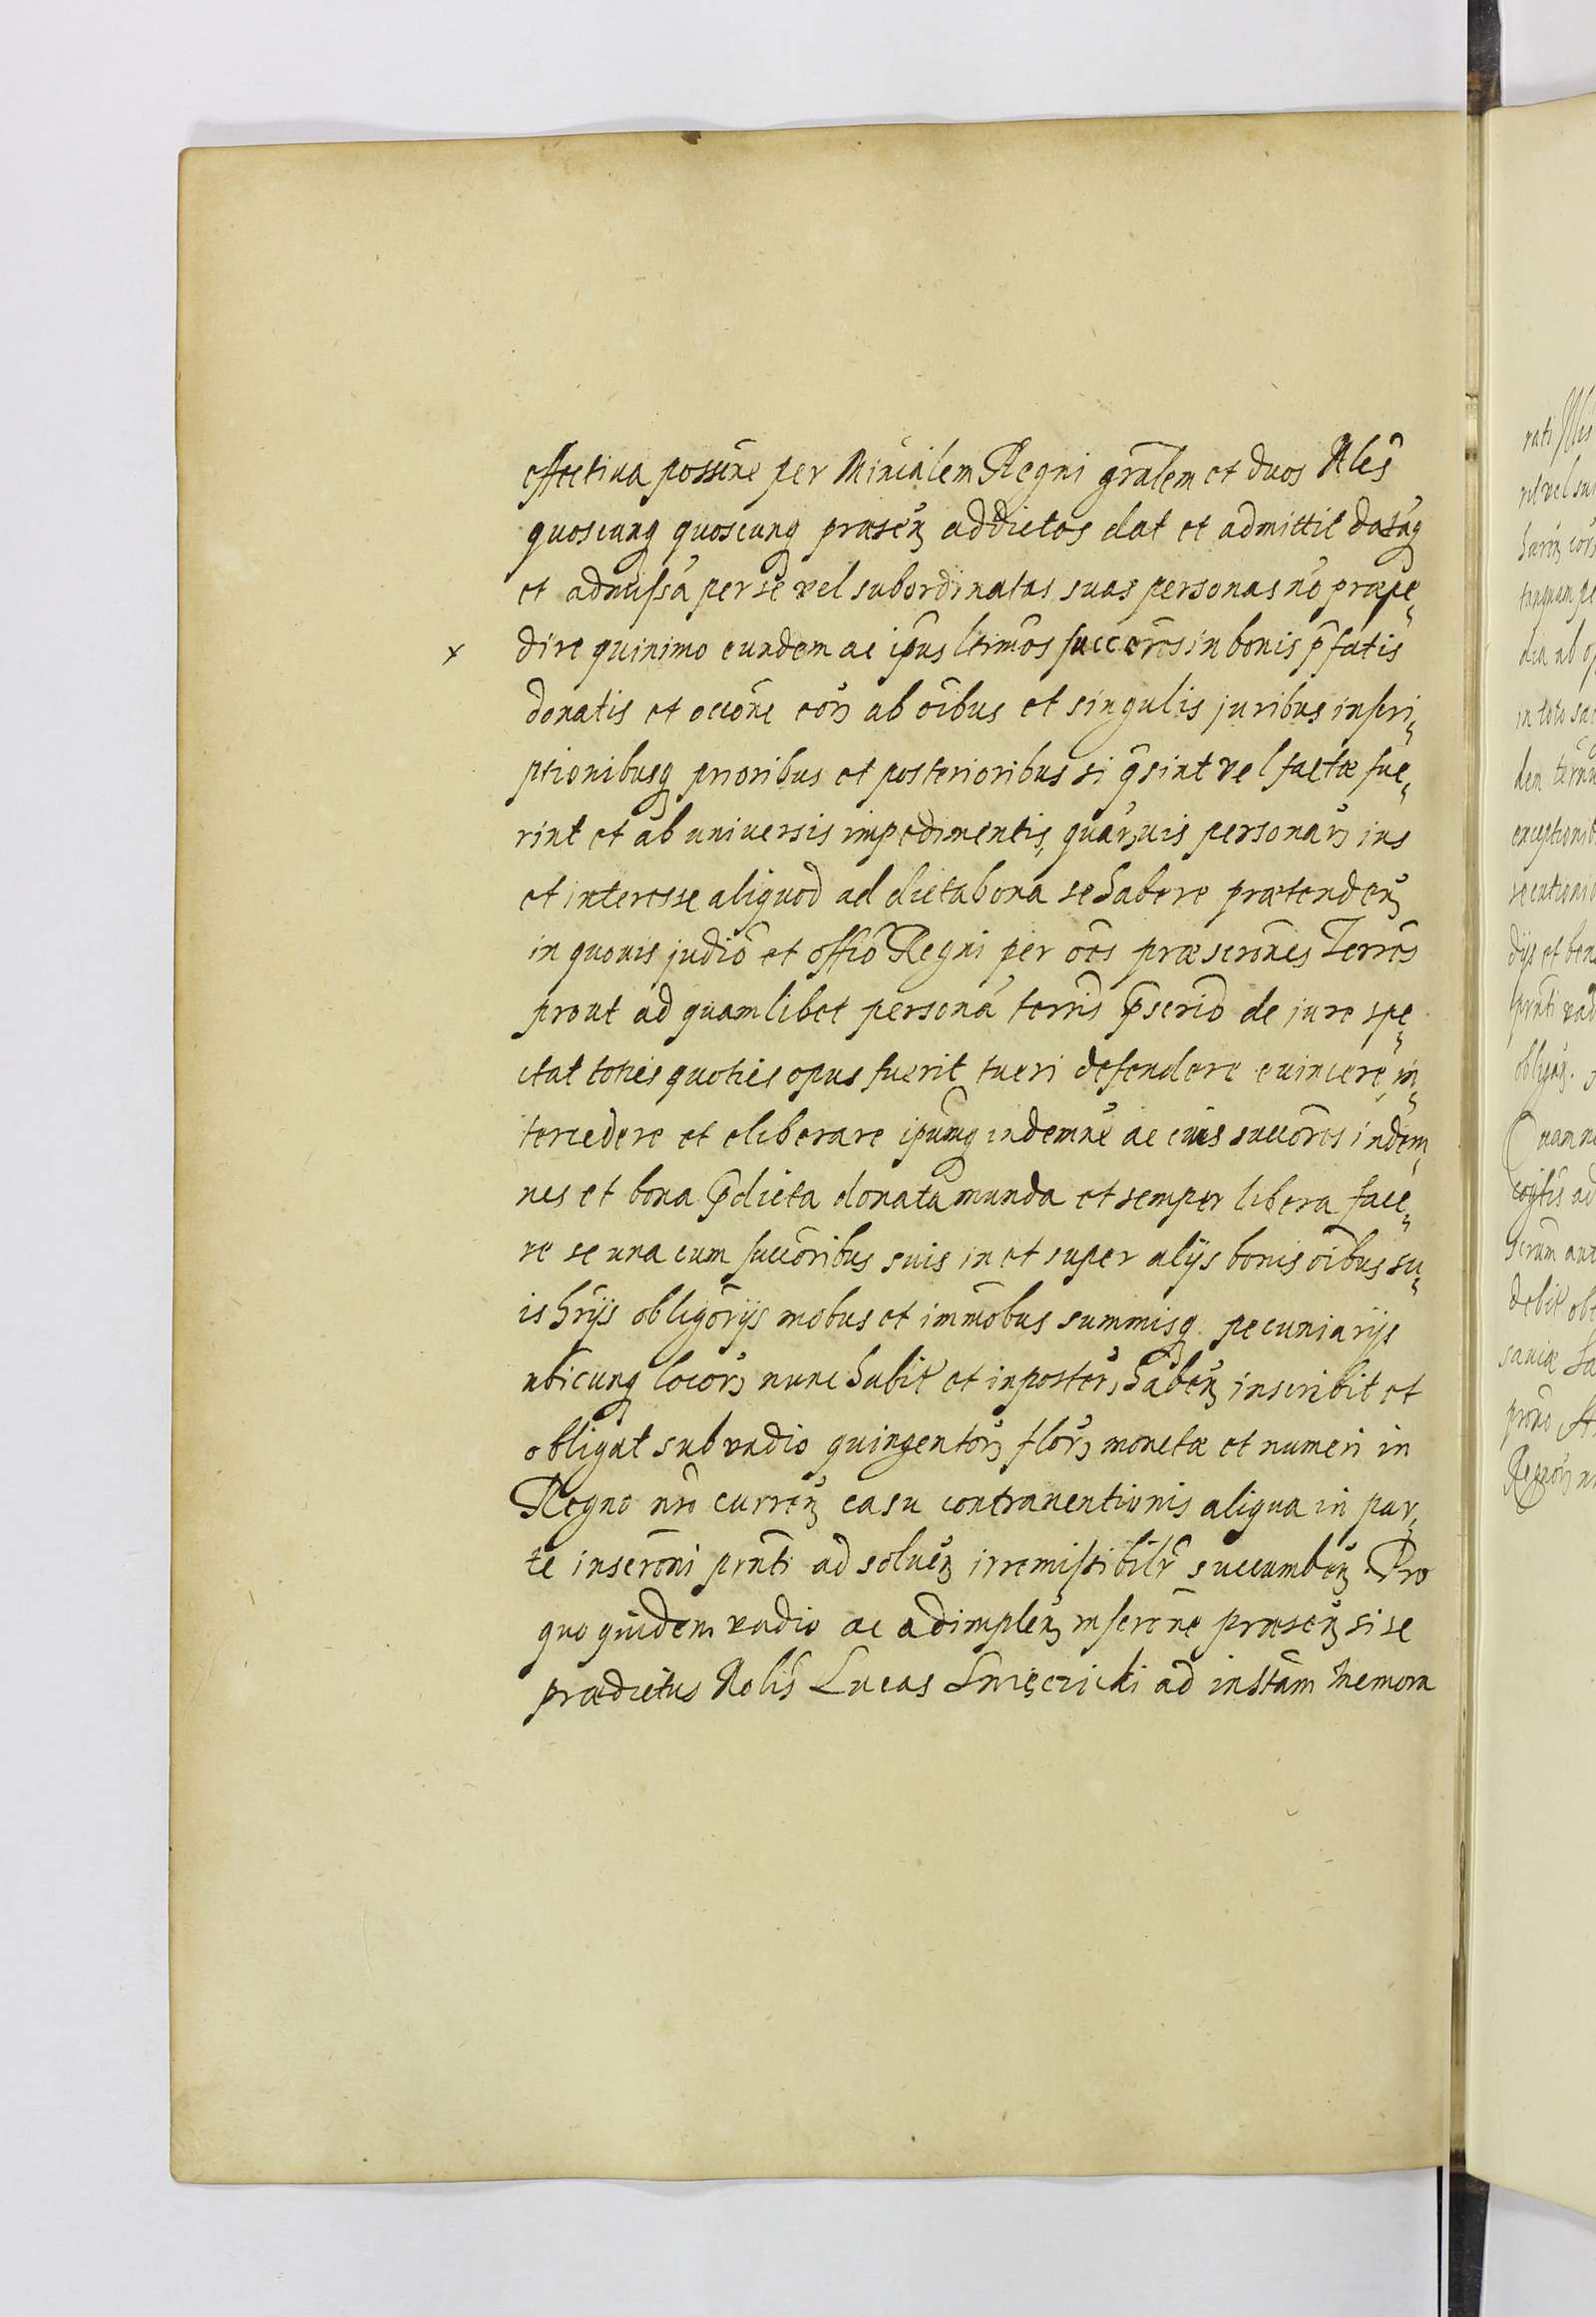 effectiva possne per Minālem Regni gralem et duos Nles
quoscunq quoscunq præsen addictos dat et admittit datāq
et admissā per se vel subordinatas suas personas nō præpe„
x dire quinimo eundem ac ipus ltimos succeros in bonis pfatis
donatis et occōne eor ab oibus et singulis juribus inscri„
ptionibusq prioribus et posterioribus si q sint vel factæ fue„
rint et ab universis impedimentis, quarvis personar ius
et interesse aliquod ad dicta bona se habere prætenden
in quovis judiō et offiō Regni per oēs præscrones Terres
prout ad quamlibet personā terris pscriō de jure spe„
ctat toties quoties opus fuerit tueri defendere evincere, in„
tercedere et eliberare ipumq indemnē ac eius succores indem„
nes et bona pdicta donata munda et semper libera face„
re se una cum succoribus suis in et super alijs bonis oibus su„
is hrijs obligorijs mobus et immobus summisq pecuniarijs
ubicunq locor nunc habit et in poster, haben inscribit et
obligat sub vadio quingentor flor monetæ et numeri in
Regno nro curren casu contraventionis aliqua in par„
te inscroni pnti ad solven irremissibilr succumben. Pro
quo quidem vadio ac adimplen inscrone præsen si se
prædictus Nolis Lucas Smięczicki ad instam memora
rati Illis
tanquam pe
dia ab
in toto
den
exceptionib
secutioni
dijs et
obligan.
Quam
debit
saviæ
Regnor